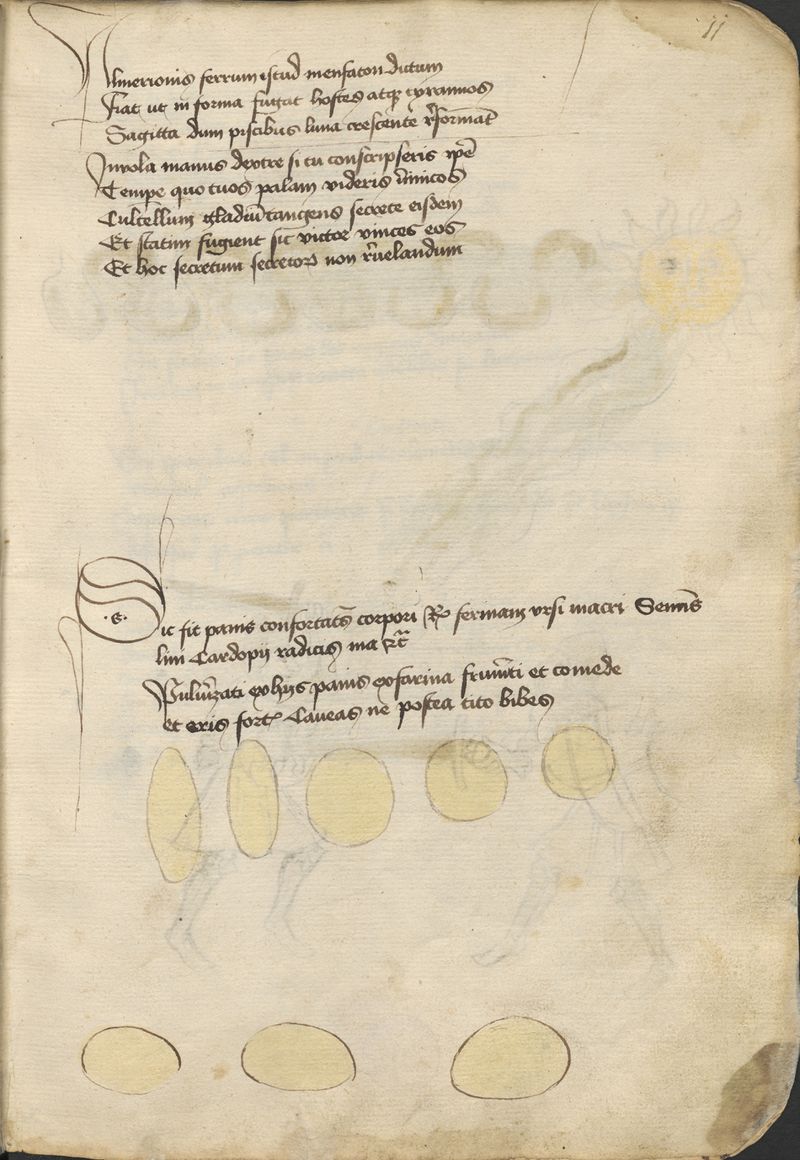 11
Almerionis ferrum istud mensaton dictum
Fiat ut in forma fugat hostes atq tyrannos
Sagitta dum piscibus luna crescente rˀformat
In vola manus dextre si tu conscripseris ip̄e
Tempe quo tuos palam videris inimicos
Cultellum gladiū tangens secrete eisdem
Et statim fugient sic victor vinces eos
Et hoc secretum secretoꝝ non rˀuelandum
Sic fit panis confortatꝰ corpori Rͬ ferinam ursi macri Semīs
lini Cardopij radicis ma
Pulūˀzati ex hijs panis ex farina frumēti et comede
et eris fortꝭ Caveas ne postea cito bibes